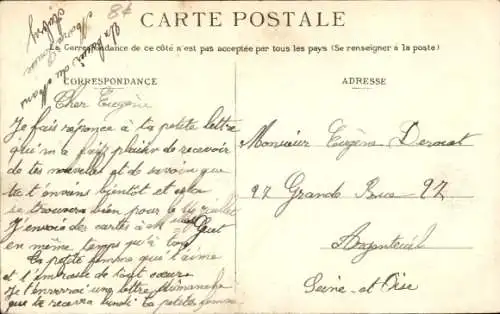 CARTE POSTALE
La Correspondance de ce côté n'est pas acceptée par tous les pays (Se renseigner à la poste)
CORRESPONDANCE
ADRESSE
Cher Eugène
Je fais réponce à ta petite lettre
qui m'a fait plaisir de recevoir
de tes nouvelles et de savoir que
tu t'en viens bientot et cela
se trouvera bien pour le 14 juillet
J'envoie des cartes à
en même temps qu'à toi
Ta petite femme qui t'aime
et t'embrasse de tout cœur
Je t'enverrai une lettre dimanche
que tu recevra lundi Ta petite femme
Monsieur Eugène
97 Grande Rue 97
Argenteuil
Seine-et-Oise